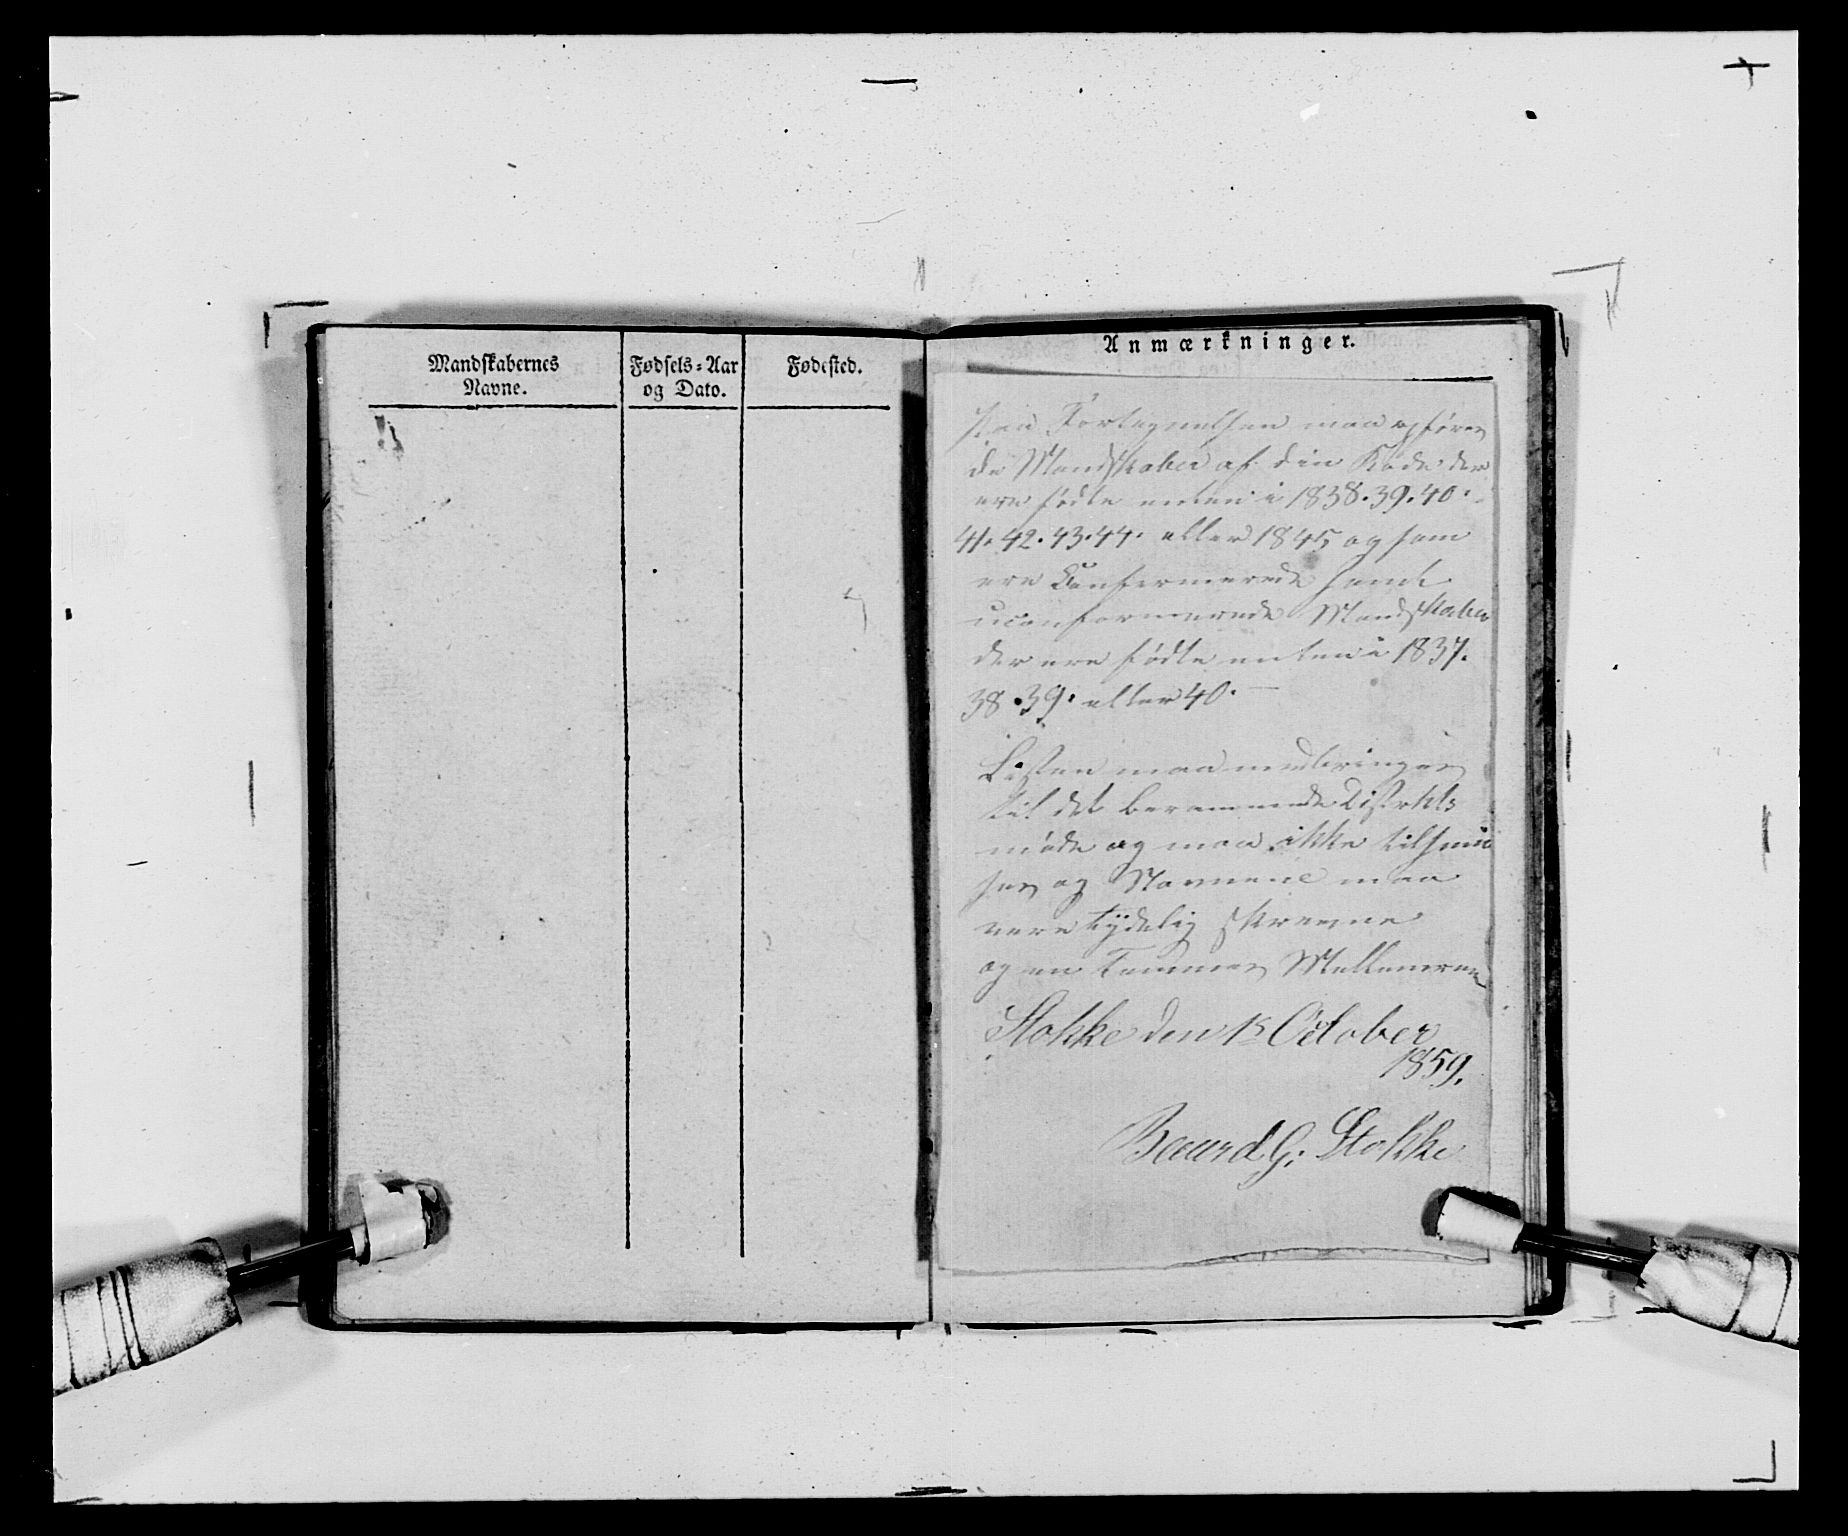 Mandskabernes
Navne.
Fødsels-Aar
og Dato.
Fødested.
Anmærkninger.
Paa Fortegnelsen maa opføres
de Mandskaber af din Rode der
ere fødte enten i 1838. 39. 40.
41. 42. 43. 44. eller 1845 og som
ere Confermerede samt
uconformerede Mandskaber
der ere fødte enten i 1837.
38. 39. eller 40. —
Listen maa medbringes
til det berammede Distrikts
møde og maa ikke tilsmu
ses og Navnene maa
være tydelig skrevne
og en Tommes Mellemrum
Stokke den 15 October
1859.
Baard G: Stokke